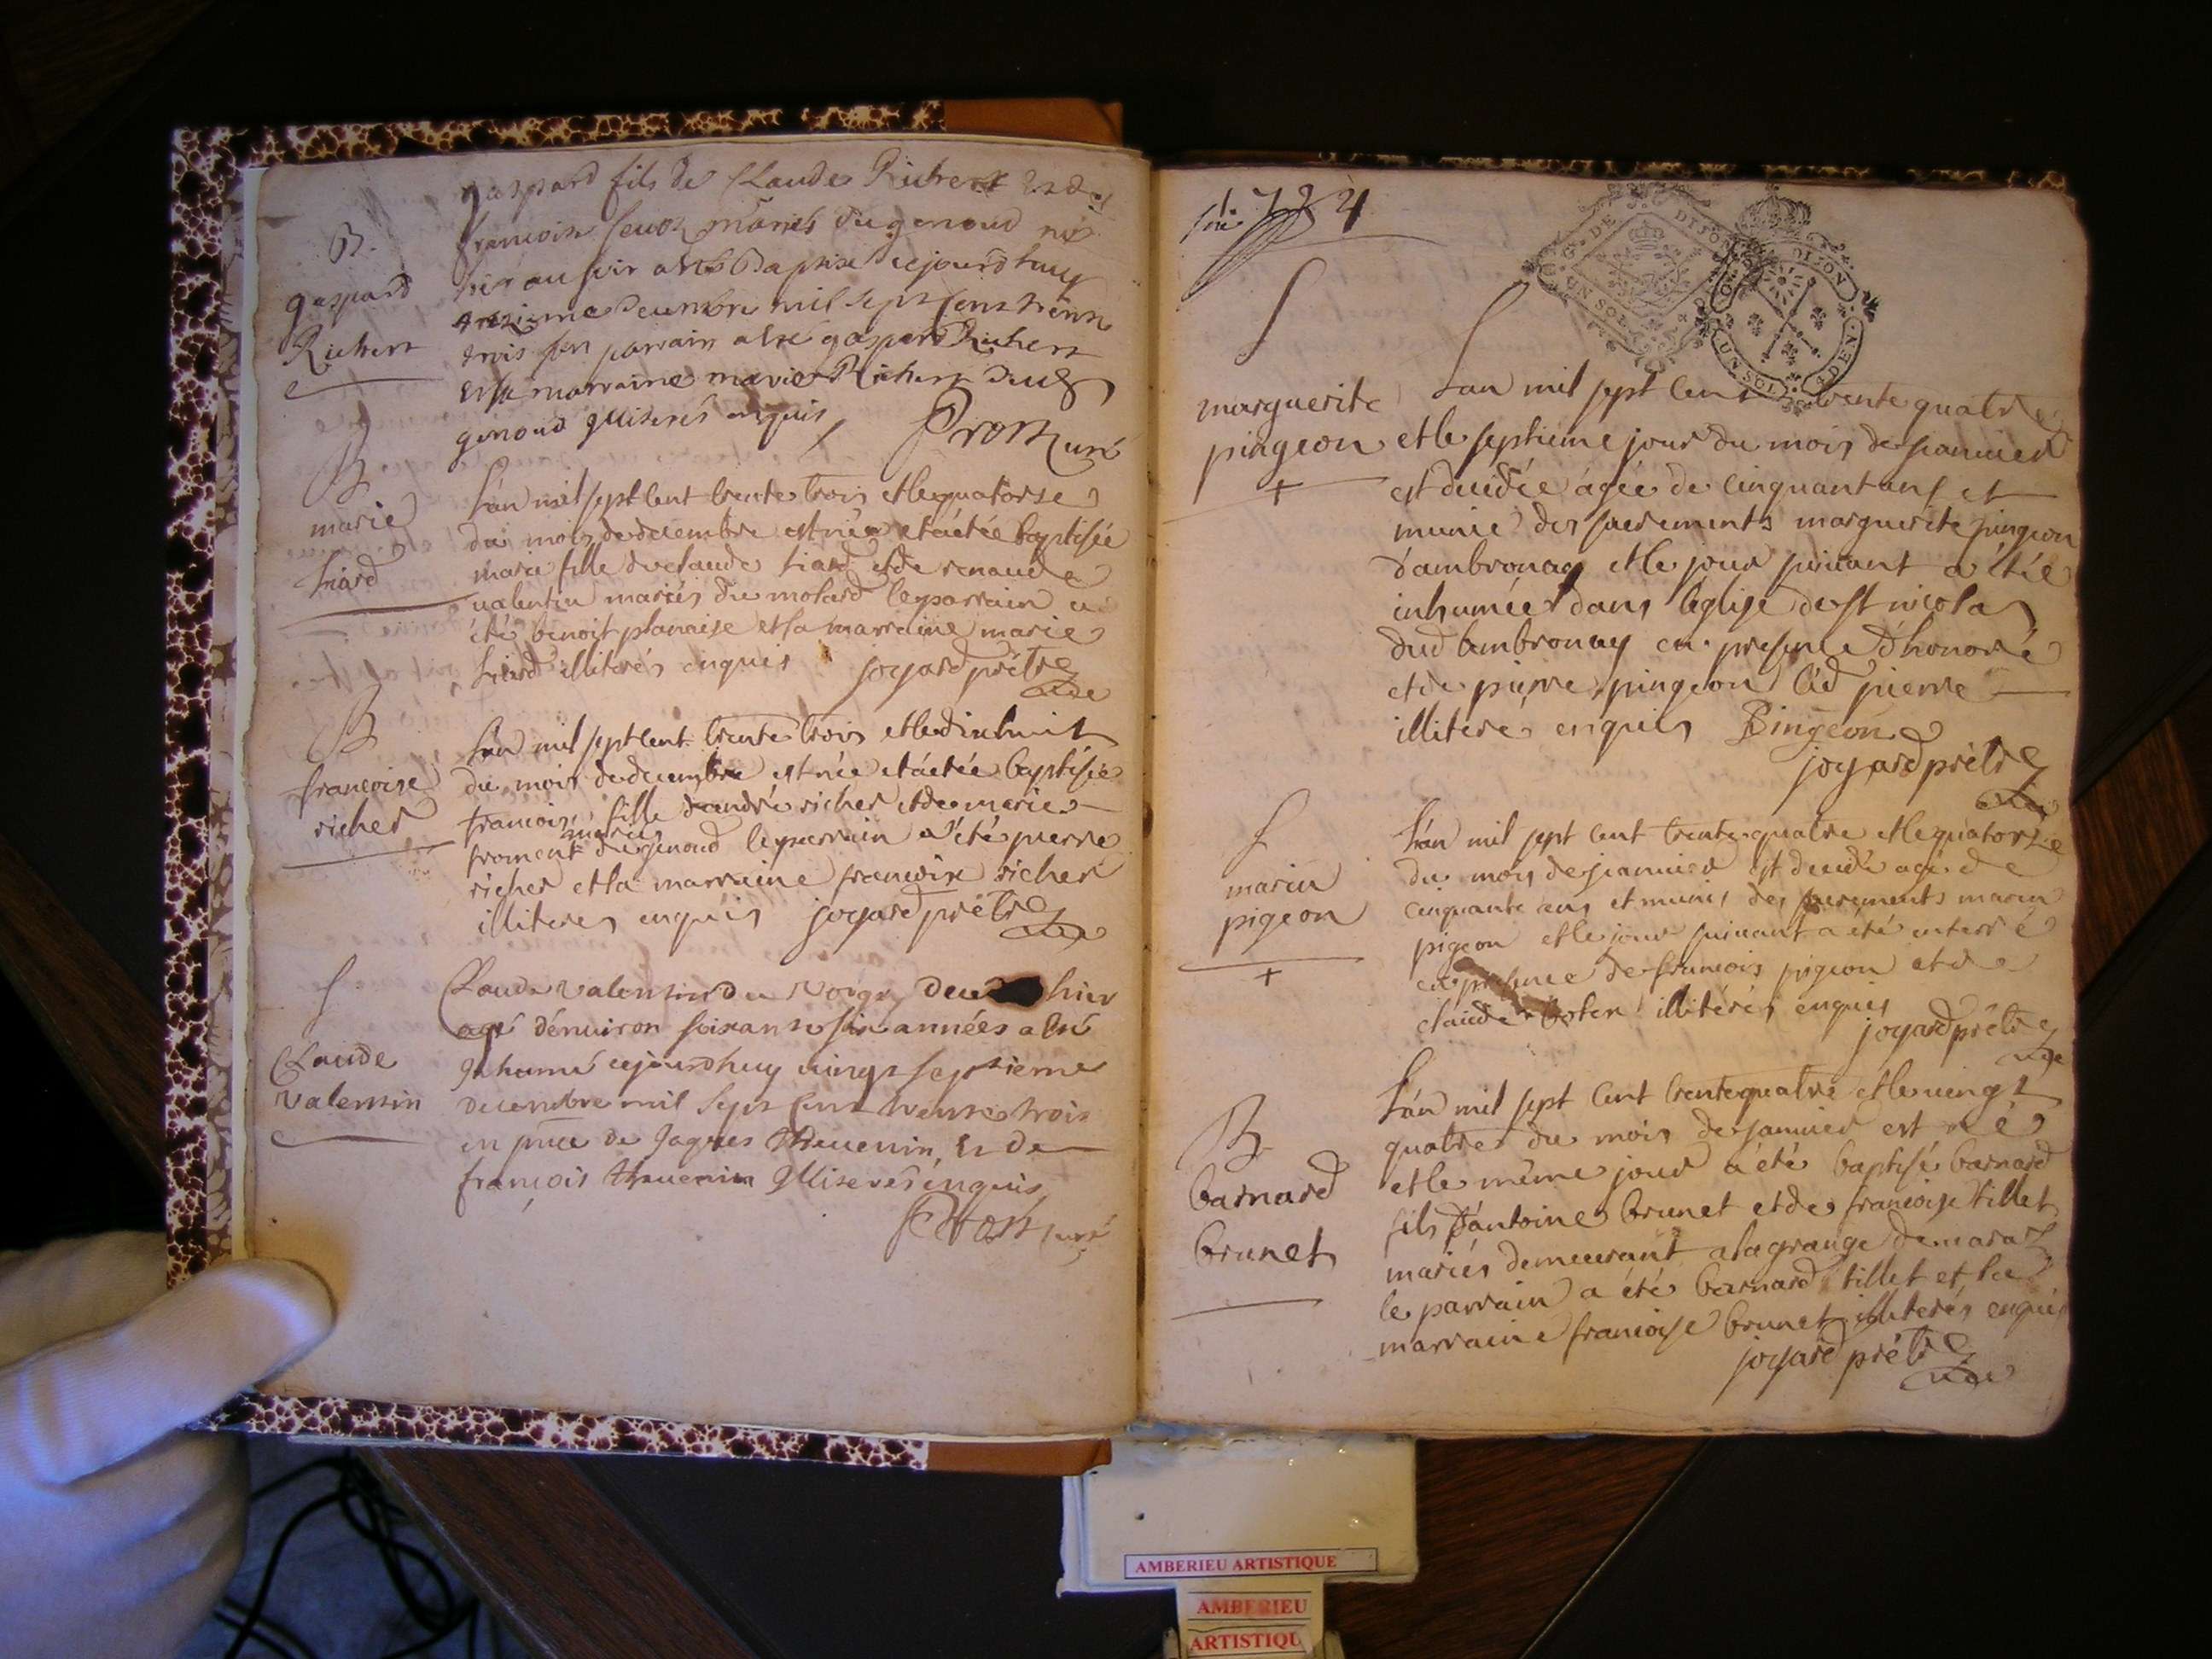 B.
gaspard
Richert
gaspard fils de Claude Richert et de
francoise mariés du genoud né
hier au soir a esté Baptisé cejourdhuy
treizieme decembre mil sept cens trente
trois son parrain a esté gaspard Richert
et sa marraine marie Richert dud
genoud Illiterés enquis Prost curé
B
marie
hiard
l'an mil sept cent trente trois et le quatorze
du mois de decembre est née et a étée baptisée
marie fille de claude hiard et de renaude
valentin mariés du molard le parrain a
été benoit planaise et la marraine marie
hiard illiterés enquis joyard prêtre
B
francoise
richer
l'an mil sept cent trente trois et le dix huit
du mois de decembre est née et a étée baptisée
francoise fille d'andré richer et de marie
mariés
froment du genoud le parrain a été pierre
richer et la marraine francoise richer
illiteres enquis joyard prêtre
S
Claude
valentin
Claude valentin du hier
agé d'environ soixante six années a été
Inhumé cejourdhuy vingt septieme
decembre mil sept cens trente trois
en pnce de Jaques Thevenin, et de
françois thevenin Illiterés enquis
Prost curé
1734
S
marguerite
pingeon
+
G. DE DIJON
UN SOL
DIJON
UN SOL 4 DEN.
L'an mil sept cent trente quatre
et le septieme jour du mois de janvier
est decédée agée de cinquant ans et
munie des sacrements marguerite pingeon
d'ambronay et le jour suivant a étée
inhumée dans l'eglise de St nicolas
dud ambronay en presence d'honoré
et de pierre pingeon led pierre
illitere enquis Pingeon
joyard prêtre
S
marin
pigeon
+
l'an mil sept cent trente quatre et le quatorze
du mois de janvier est decedé agé de
cinquante ans et munis des sacrements marin
pigeon et le jour suivant a été enterré
en presence de francois pigeon et de
claude illitérés enquis
joyard prêtre
B
barnard
brunet
l'an mil sept cent trente quatre et le vingt
quatre du mois de janvier est né
et le même jour a été baptisé barnard
fils d'antoine brunet et de francoise tillet
mariés demeurant a la grange demarast
le parrain a été barnard tillet et la
marraine francoise brunet illiterés enquis
joyard prêtre
AMBERIEU ARTISTIQUE
AMBERIEU
ARTISTIQU